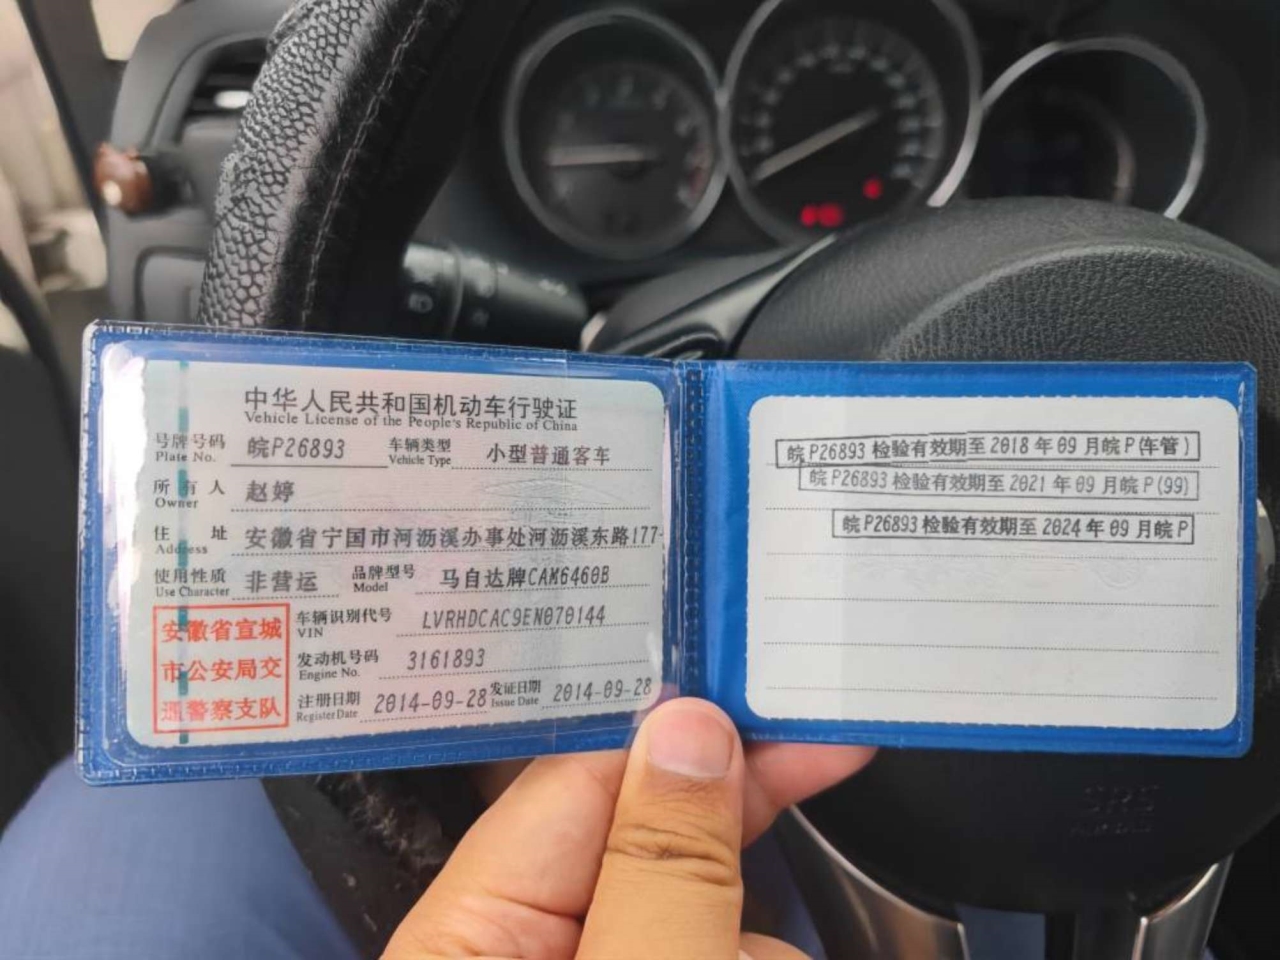 中华人民共和国机动车行驶证
Vehicle License of the People's Republic of China
号牌号码 皖P26893 车辆类型 小型普通客车
Plate No. Vehicle Type
所有人 赵婷
Owner
住址 安徽省宁国市河沥溪办事处河沥溪东路177-
Address
使用性质 非营运 品牌型号 马自达牌CAM6460B
Use Character Model
安徽省宣城
市公安局交
通警察支队
车辆识别代号 LVRHDCAC9EN070144
VIN
发动机号码 3161893
Engine No.
注册日期 2014-09-28 发证日期 2014-09-28
Register Date Issue Date
皖P26893检验有效期至2018年09月皖P(车管)
皖P26893检验有效期至2021年09月皖P(99)
皖P26893检验有效期至2024年09月皖P
SRS